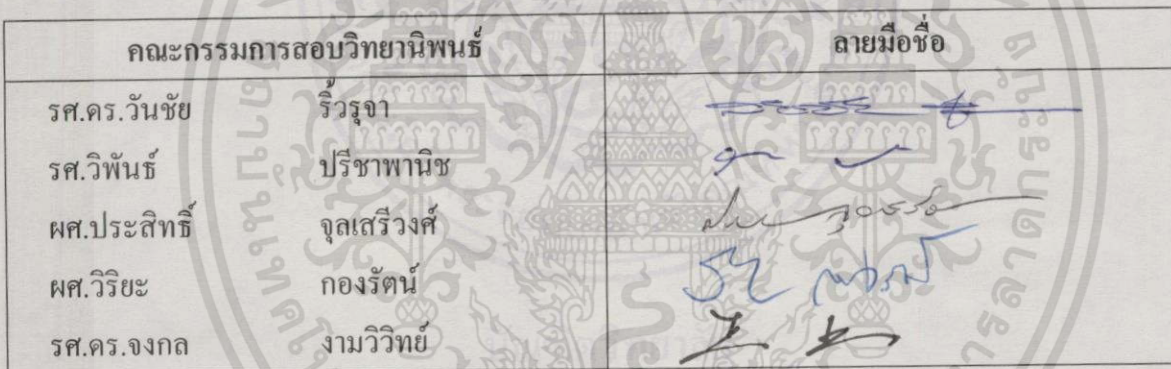 คณะกรรมการสอบวิทยานิพนธ์ ลายมือชื่อ
รศ.ดร.วันชัย ริ้วรุจา
รศ.วิพันธ์ ปรีชาพานิช
ผศ.ประสิทธิ์ จุลเสรีวงศ์
ผศ.วิริยะ กองรัตน์
รศ.ดร.จงกล งามวิวิทย์